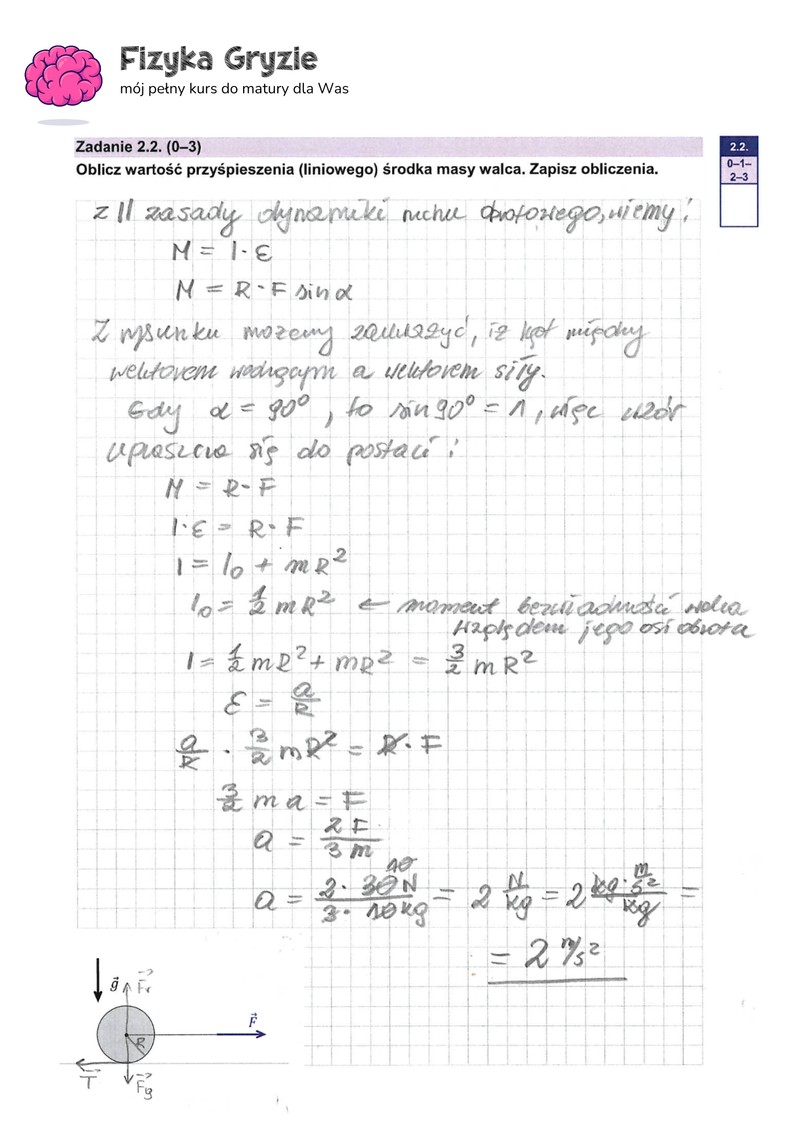 Fizyka Gryzie
mój pełny kurs do matury dla Was
Zadanie 2.2. (0–3)
Oblicz wartość przyśpieszenia (liniowego) środka masy walca. Zapisz obliczenia.
2.2.
0–1–
2–3
z II zasady dynamiki ruchu obrotowego, wiemy:
M = I · ε
M = R · F sin α
Z rysunku możemy zauważyć, iż kąt między
wektorem wodzącym a wektorem siły.
Gdy α = 90°, to sin 90° = 1, więc wzór
upraszcza się do postaci:
M = R · F
I · ε = R · F
I = I₀ + mR²
I₀ = 1/2 mR² ← moment bezwładności walca
względem jego osi obrotu
I = 1/2 mR² + mR² = 3/2 mR²
ε = a/R
a/R · 3/2 mR² = R · F
3/2 m a = F
a = 2F / 3m
10
a = 2 · 30N / 3 · 10kg = 2 N/kg = 2 kg · m/s² / kg =
= 2 m/s²
g⃗ F⃗r
F⃗
R
T⃗
F⃗g